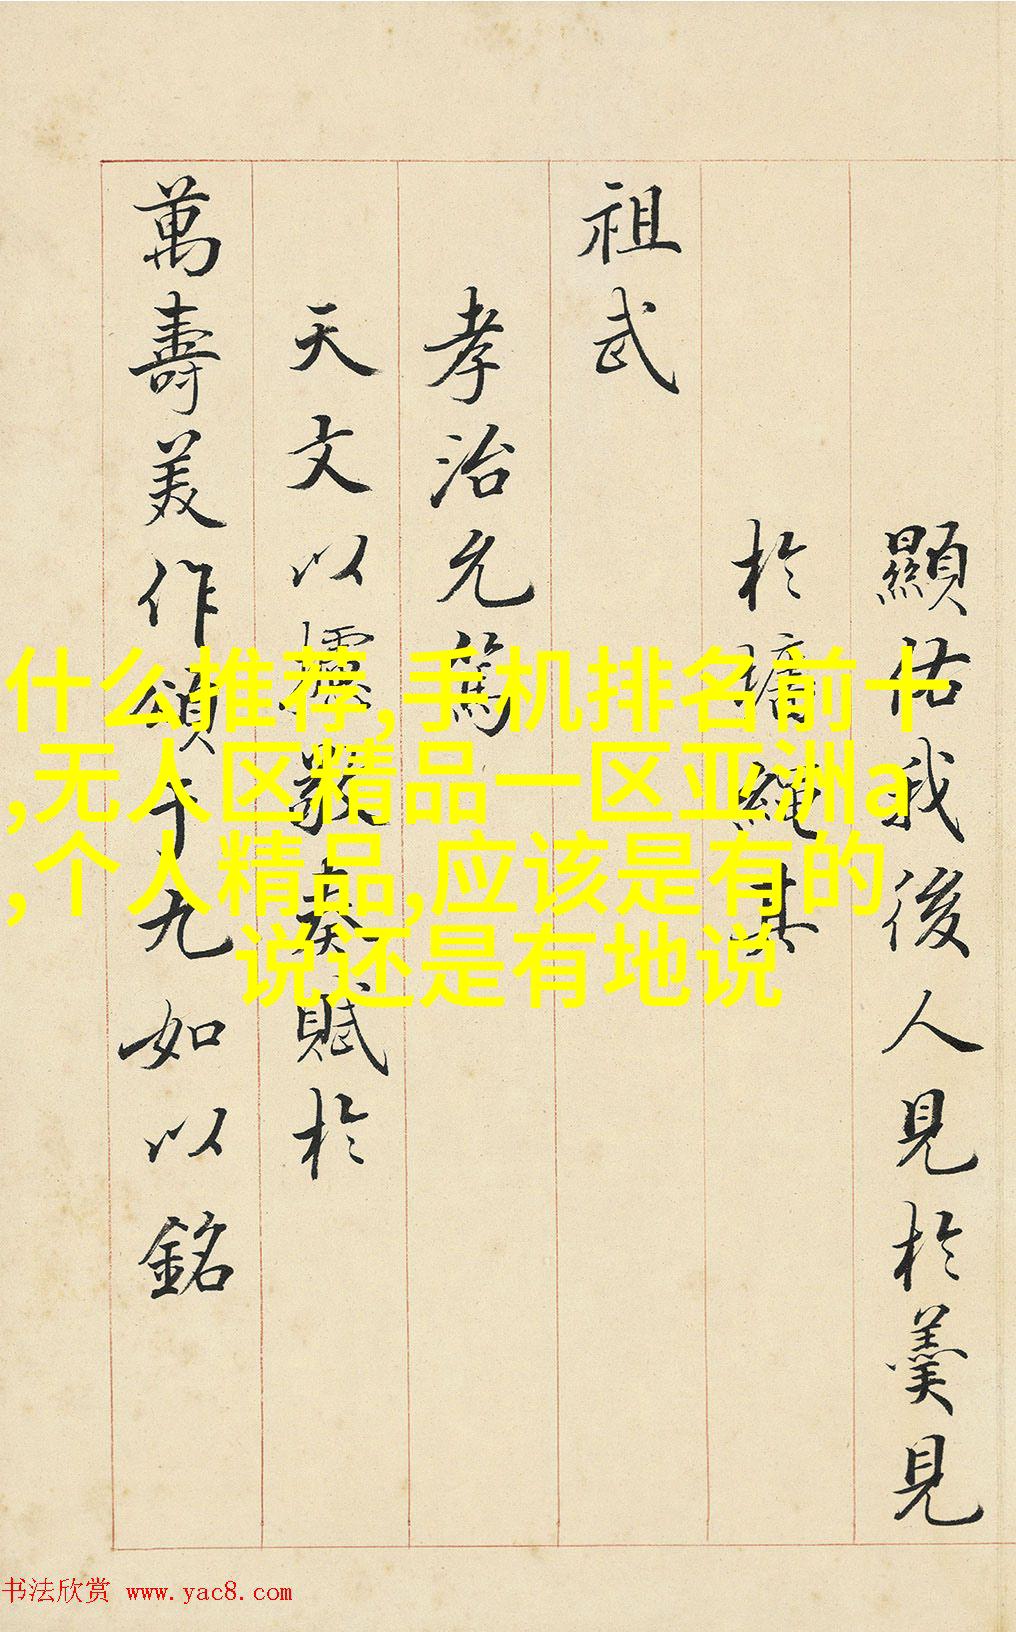 顯佑我後人見於羹見
於墻繩其
祖武
孝治允篤
天文以攄敬奏賦於
萬壽美作頌卜九如以銘
什么推荐,手机排名前十
,无人区精品一区亚洲a
,个人精品,应该是有的
说还是有地说
书法欣赏 www.yac8.com